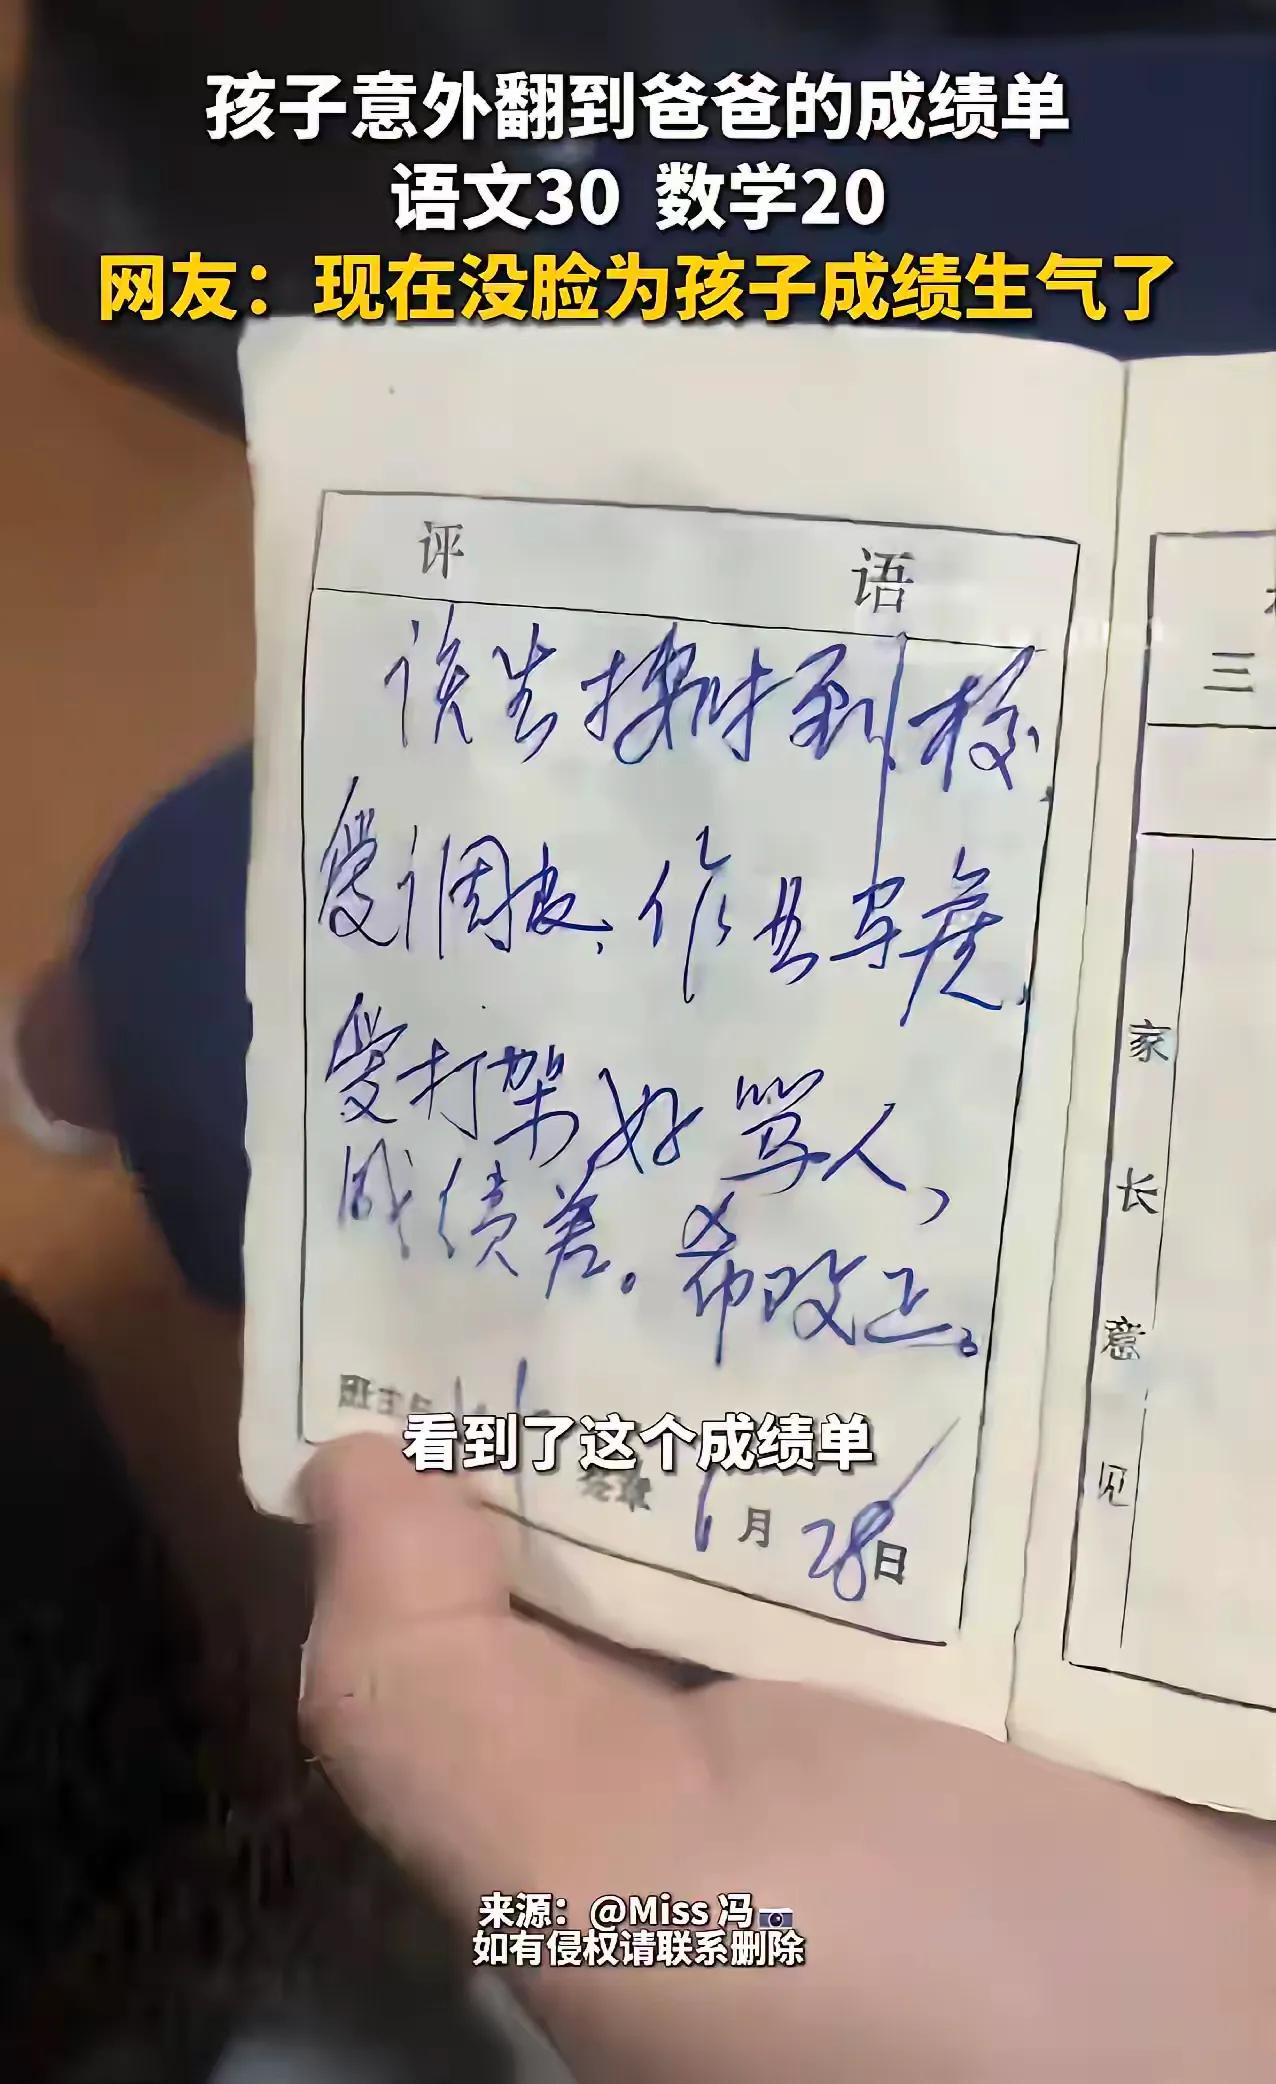 孩子意外翻到爸爸的成绩单
语文30 数学20
网友：现在没脸为孩子成绩生气了
评 语
该生按时到校，
爱调皮，作业写虎，
爱打架好骂人，
成绩差。希改正。
看到了这个成绩单
签章 1月28日
三
家长意见
来源：@Miss 冯📷
如有侵权请联系删除